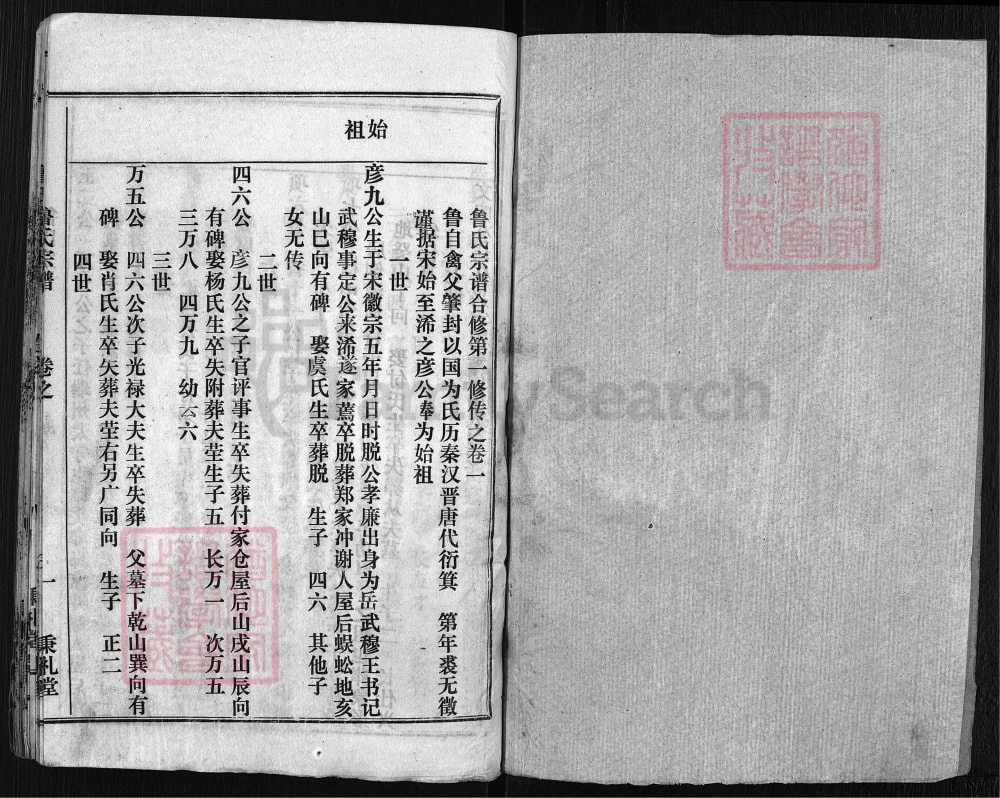 始祖
鲁氏宗谱合修第一修传之卷一
鲁自禽父肇封以国为氏历秦汉晋唐代衍箕 第年裘无徵
谨据宋始至浠之彦公奉为始祖
一世
彦九公生于宋徽宗五年月日时脱公孝廉出身为岳武穆王书记
武穆事定公来浠遂家蒿卒脱葬郑家冲谢人屋后蜈蚣地亥
山巳向有碑 娶虞氏生卒葬脱 生子 四六 其他子
女无传
二世
四六公 彦九公之子官评事生卒失葬付家仓屋后山戌山辰向
有碑娶杨氏生卒失附葬夫茔生子五 长万一 次万五
三万八 四万九 幼云六
三世
万五公 四六公次子光禄大夫生卒失葬 父墓下乾山巽向有
碑 娶肖氏生卒矢葬夫茔右另广同向 生子 正二
四世
鲁氏宗谱
卷之
一
秉礼堂
FamilySearch